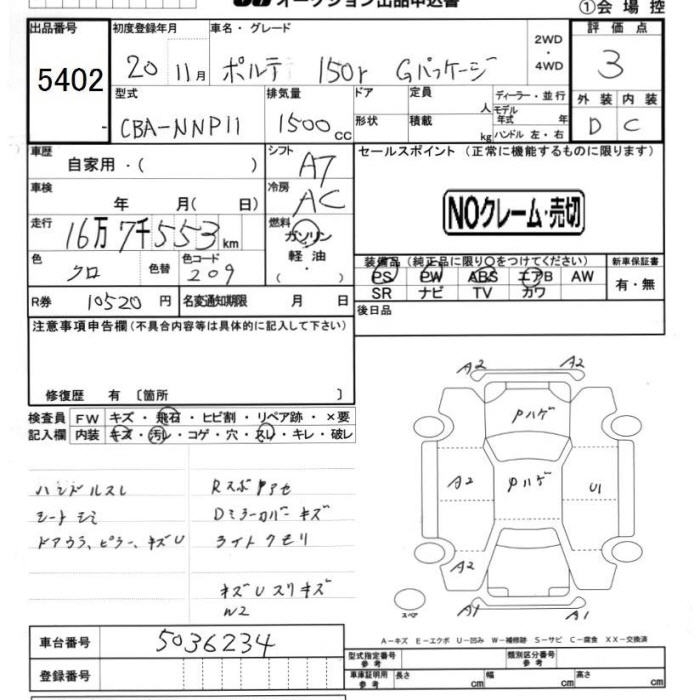 オークション出品申込書
①会場控
出品番号
5402
初度登録年月 車名・グレード
20 11月 ポルテ 150r Gパッケージ
2WD
・
4WD
評価点
3
型式 排気量 ドア 定員 人 ディーラー・並行
CBA-NNP11 1500cc 形状 積載 kg モデル年式 年
ハンドル 左・右
外装 内装
D C
車歴 自家用・( )
シフト AT
セールスポイント (正常に機能するものに限ります)
車検 年 月( 日)
冷房 AC
NOクレーム・売切
走行 16万7千553km
燃料 ガソリン・軽油・( )
色 クロ 色替 色コード 209
装備品 (純正品に限り○をつけてください) 新車保証書
PS PW ABS エアB AW 有・無
SR ナビ TV カワ
R券 10520円 名変通知期限 月 日
後日品
注意事項申告欄(不具合内容等は具体的に記入して下さい)
修復歴 有 〔箇所 〕
検査員 FW キズ・飛石・ヒビ割・リペア跡・×要
記入欄 内装 キズ・汚レ・コゲ・穴・スレ・キレ・破レ
ハンドルスレ
シートシミ
ドアウラ、ピラー、キズU
Rスポアセ
Dミラーカバーキズ
ライトクモリ
キズUスリキズ
W2
A2 A2
Pハゲ
A2 Pハゲ U1
A2
A1 A1
スペア
A-キズ E-エクボ U-凹み W-補修跡 S-サビ C-腐食 XX-交換済
車台番号 5036234
型式指定番号 参考 類別区分番号 参考
登録番号
車庫証明用 参考 長さ cm 幅 cm 高さ cm